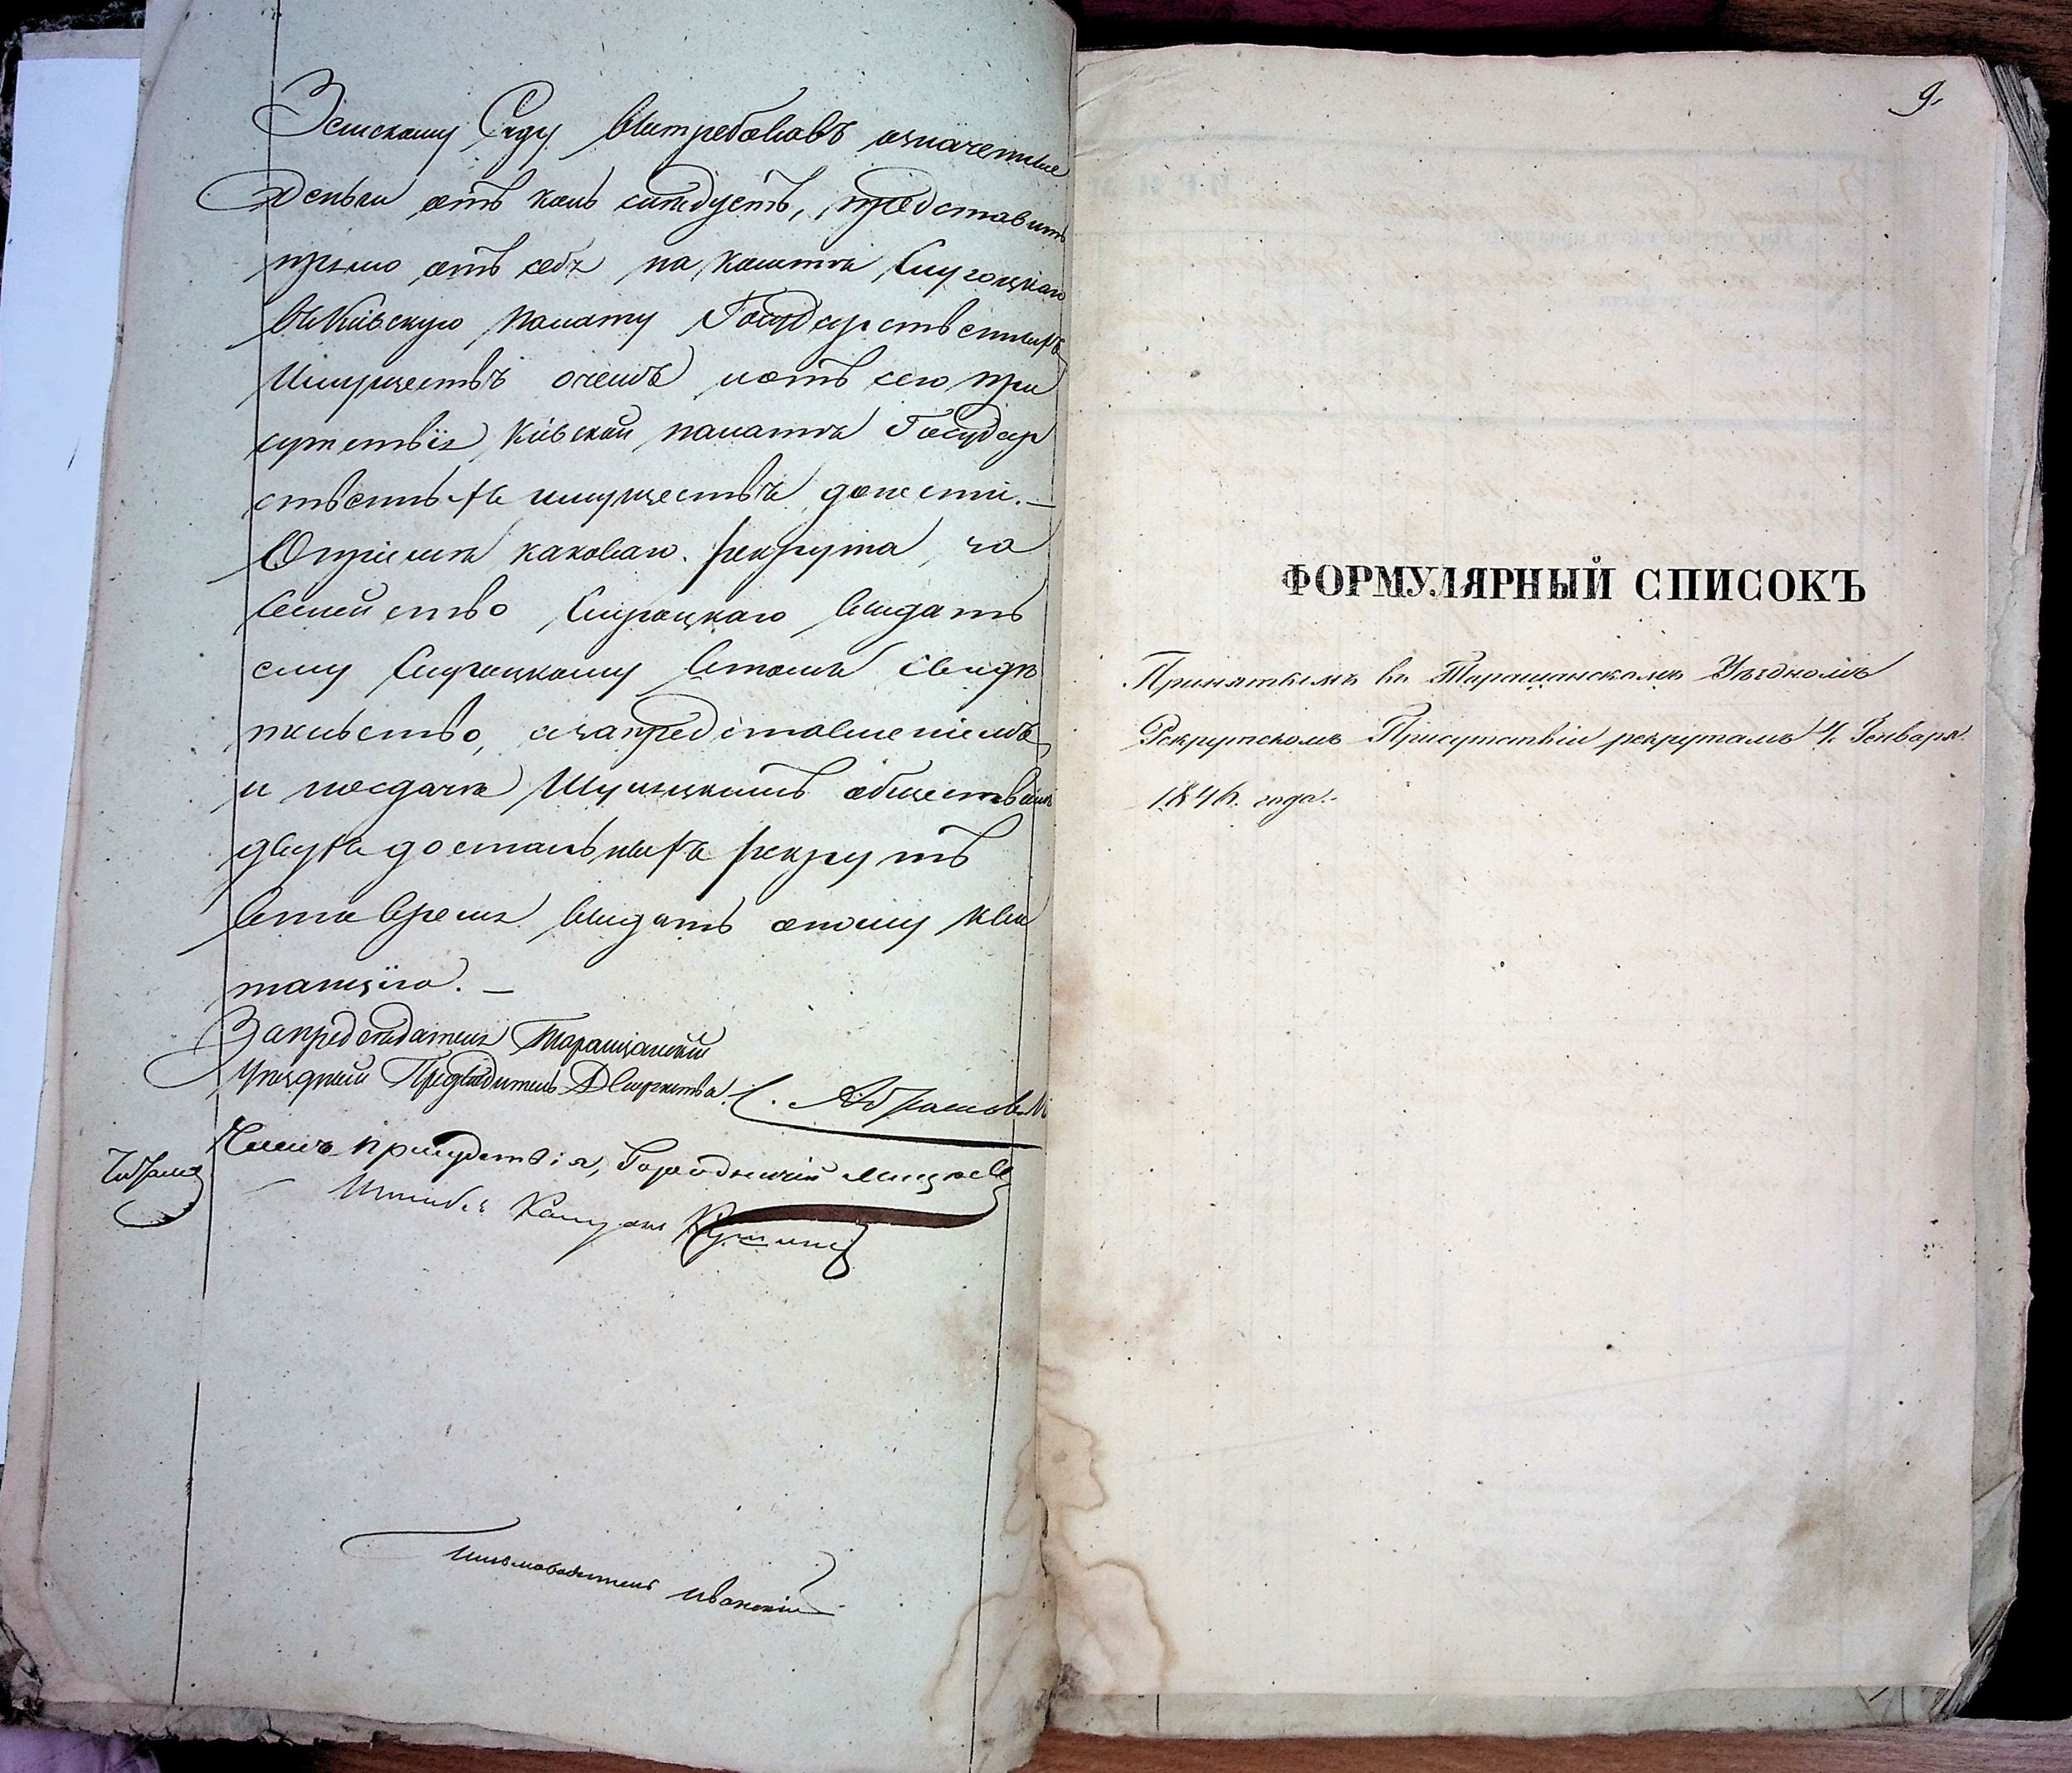 Земскому Суду вытребовавъ означенные
деньги отъ кого слѣдуетъ, представить
прямо отъ себя на Сироцкаго
въ Кіевскую Палату Государственныхъ
Имуществъ о чемъ и отъ сего При
сутствія Кіевской палатѣ Государ
ственныхъ имуществъ донести. —
О пріемѣ каковаго рекрута, за
семейство Сироцкаго выдать
ему Сироцкому въ томъ свидѣ
тельство, а за представленіемъ
и по сдачѣ обществомъ
двухъ достальныхъ рекрутъ
въ то время выдать оному кви
танцію. —
За предсѣдателя Таращанскій
Уѣздный Предводитель Дворянства
Членъ присудствія, Городничій
Штабсъ Капитанъ
Письмоводитель Иванскій
9.
ФОРМУЛЯРНЫЙ СПИСОКЪ
Принятымъ въ Таращанскомъ Уѣздномъ
Рекрутскомъ Присутствіи рекрутамъ 4. Генваря.
1846. года.